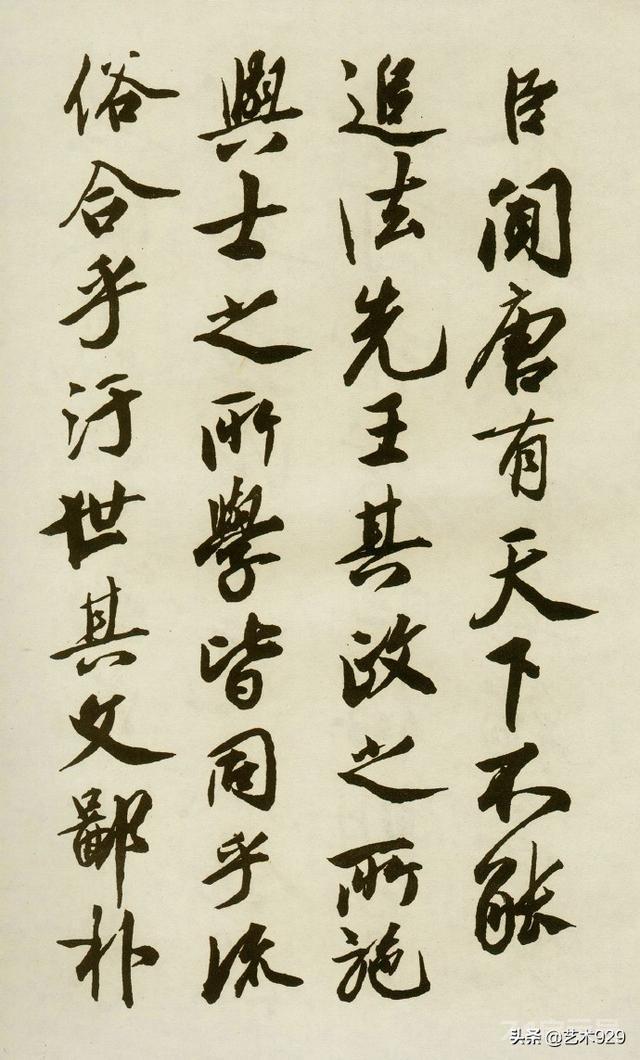 臣聞唐有天下不能
追法先王其政之所施
與士之所學皆同乎流
俗合乎汙世其文鄙朴
头条 @艺术929